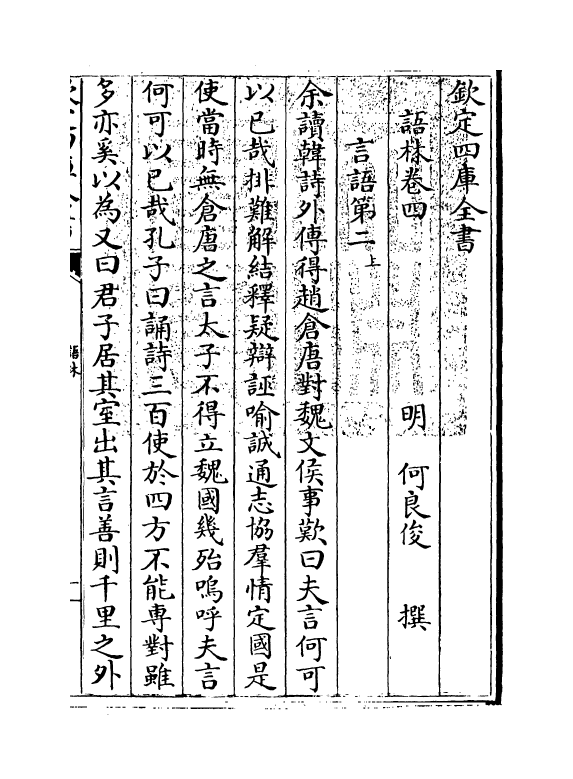 欽定四庫全書
語林卷四
明 何良俊 撰
言語第二上
余讀韓詩外傳得趙倉唐對魏文侯事歎曰夫言何可
以已哉排難解結釋疑辯誣喻誠通志協羣情定國是
使當時無倉唐之言太子不得立魏國幾殆嗚呼夫言
何可以已哉孔子曰誦詩三百使於四方不能専對雖
多亦奚以為又曰君子居其室出其言善則千里之外
語林